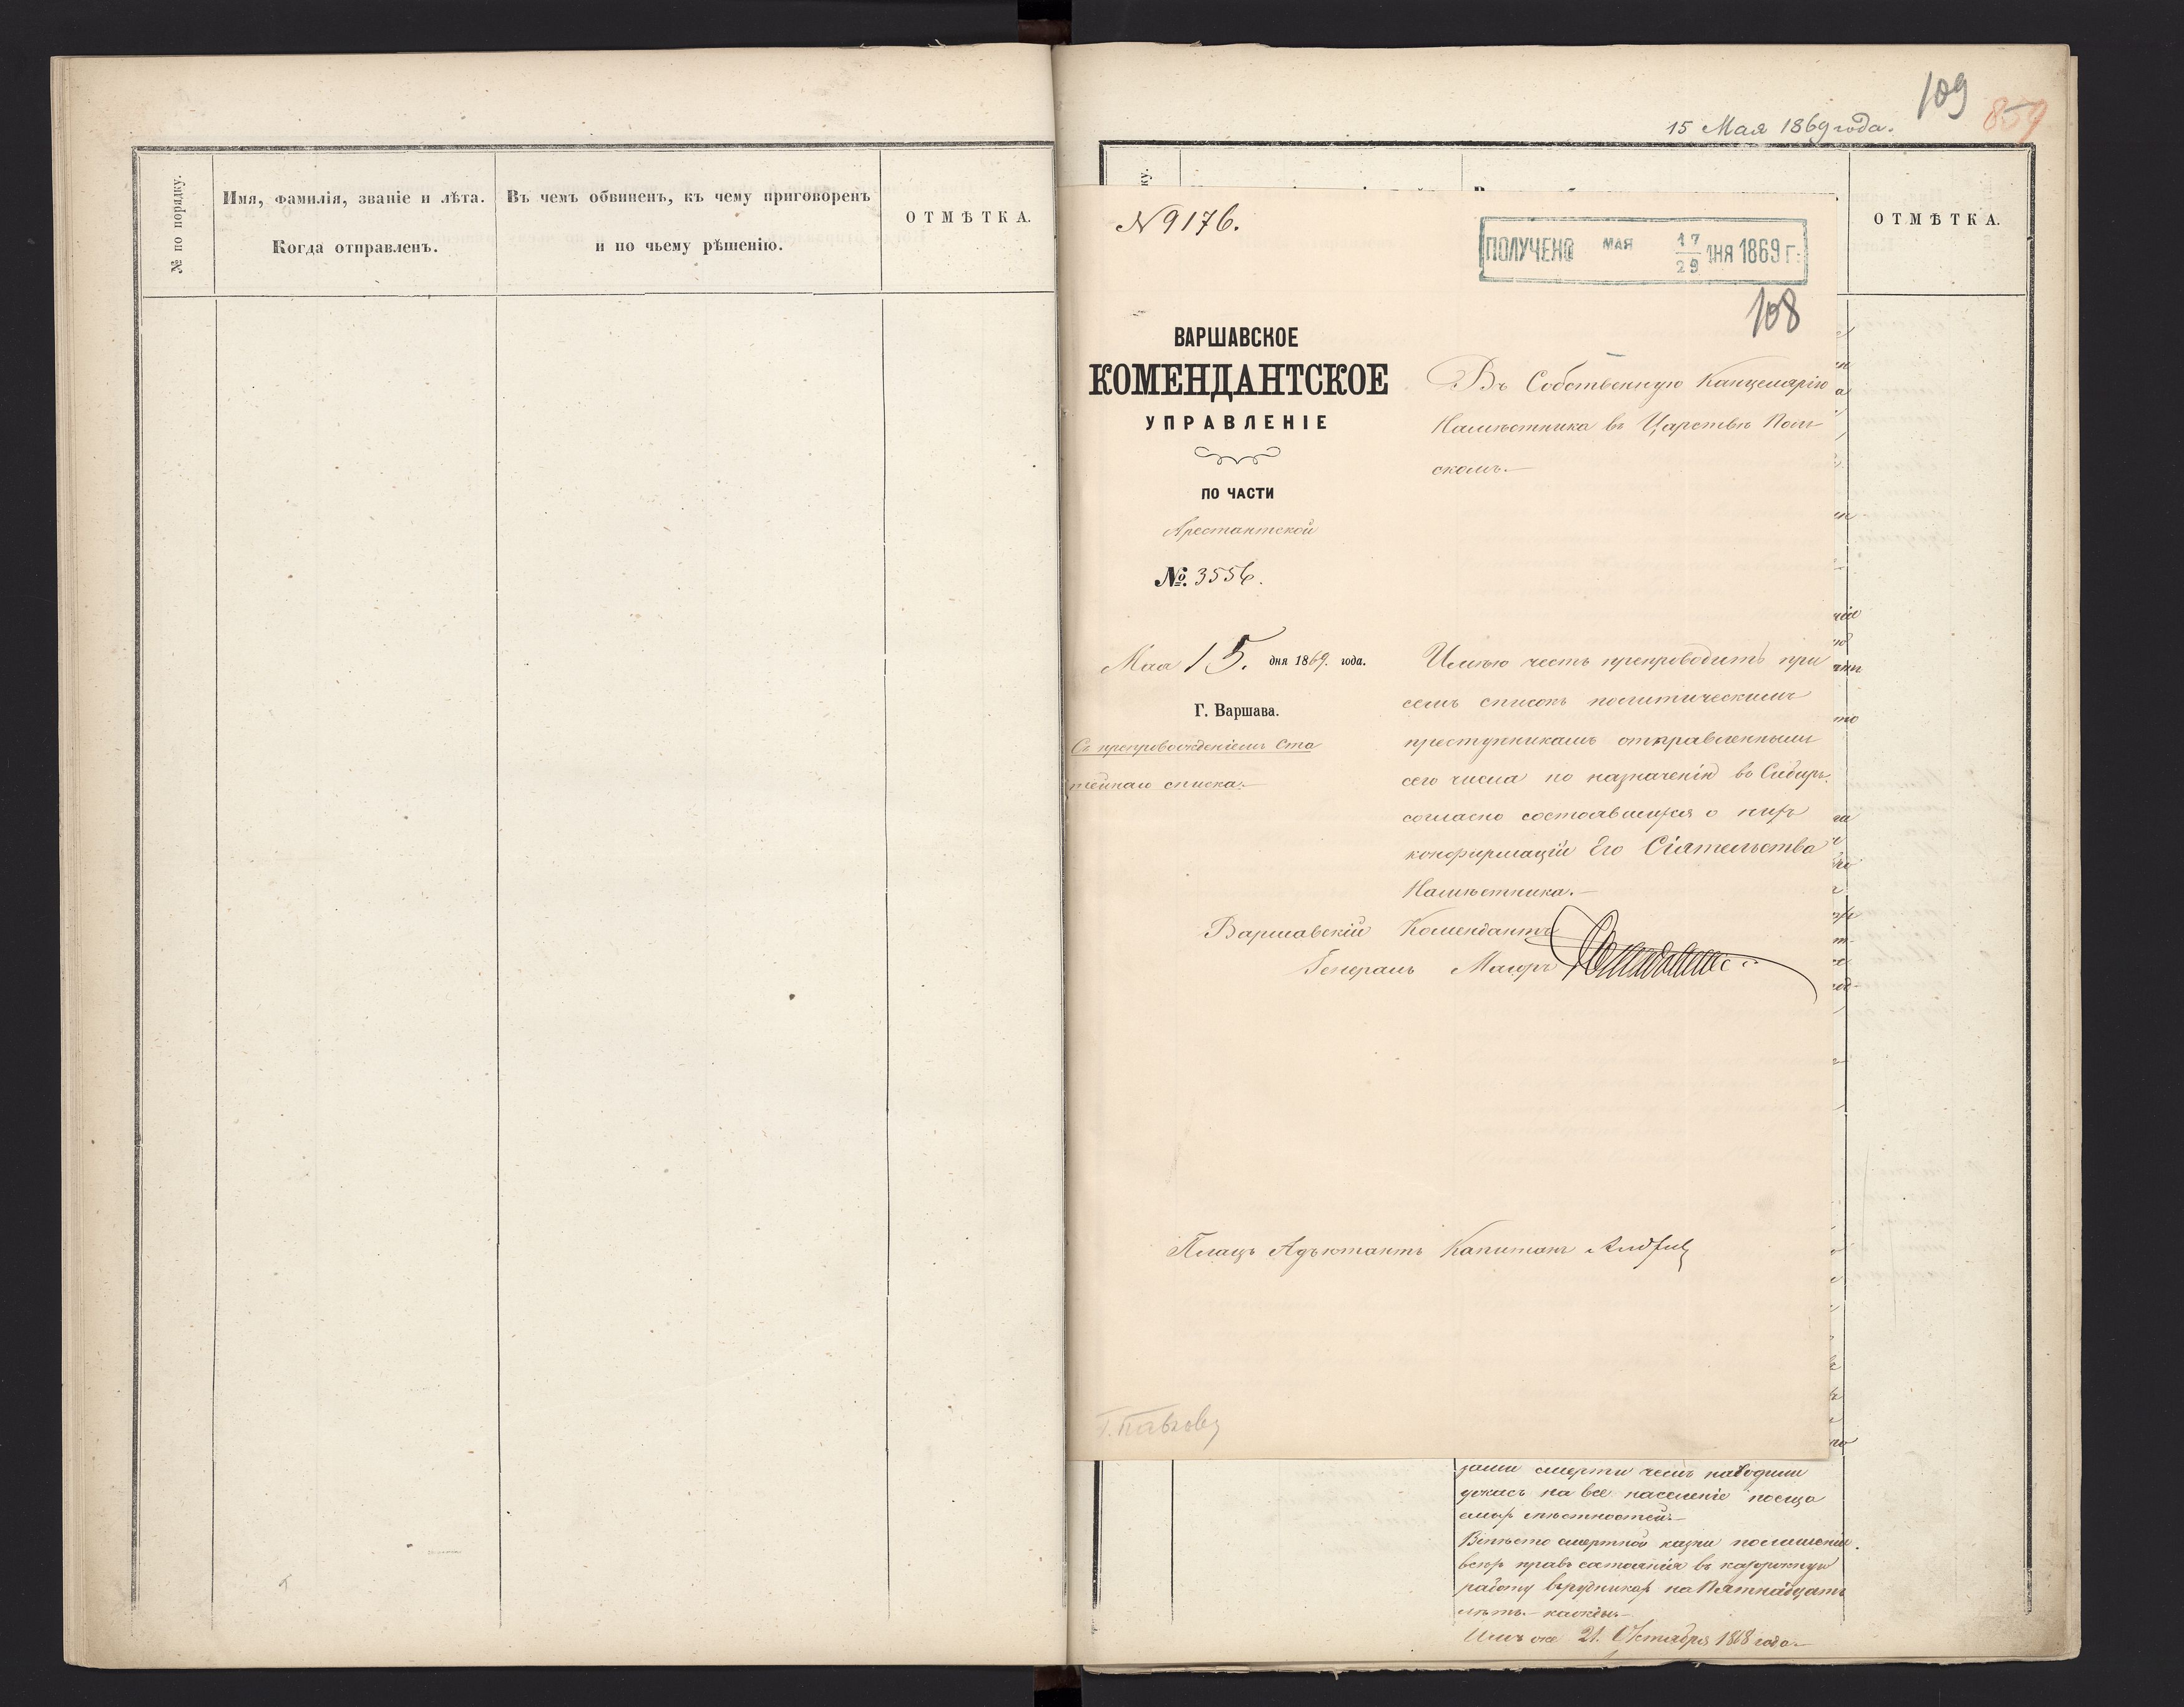 № по порядку.
Имя, фамилія, званіе и лѣта.
Когда отправленъ.
Въ чемъ обвиненъ, къ чему приговоренъ
и по чьему рѣшенію.
ОТМѢТКА.
109
859
15 Мая 1869 года.
ОТМѢТКА.
№ 9176.
ПОЛУЧЕНО МАЯ 17/29 ДНЯ 1869 г.
108
ВАРШАВСКОЕ
КОМЕНДАНТСКОЕ
УПРАВЛЕНІЕ
ПО ЧАСТИ
Арестантской
№. 3556.
Мая 15. дня 1869. года.
Г. Варшава.
Съ препровожденіемъ Ста
тейнаго списка.—
Въ Собственную Канцелярію
Намѣстника въ Царствѣ Поль
скомъ.—
Имѣю честь препроводить при
семъ списокъ политическимъ
преступникамъ отправленнымъ
сего числа по назначенію въ Сибирь,
согласно состоявшихся о нихъ
конфирмацій Его Сіятельства
Намѣстника.—
Варшавскій Комендантъ
Генералъ Маіоръ
Плацъ Адъютантъ Капитанъ
Г. Павлову
зами смерти чемъ наводили
ужасъ на все населеніе посѣща
емыхъ мѣстностей.—
Вмѣсто смертной казни по лишеніи
всѣхъ правъ состоянія въ каторжную
работу въ рудникахъ на Пятнадцать
лѣтъ.— каждый.—
21. Октября 1868 года.—